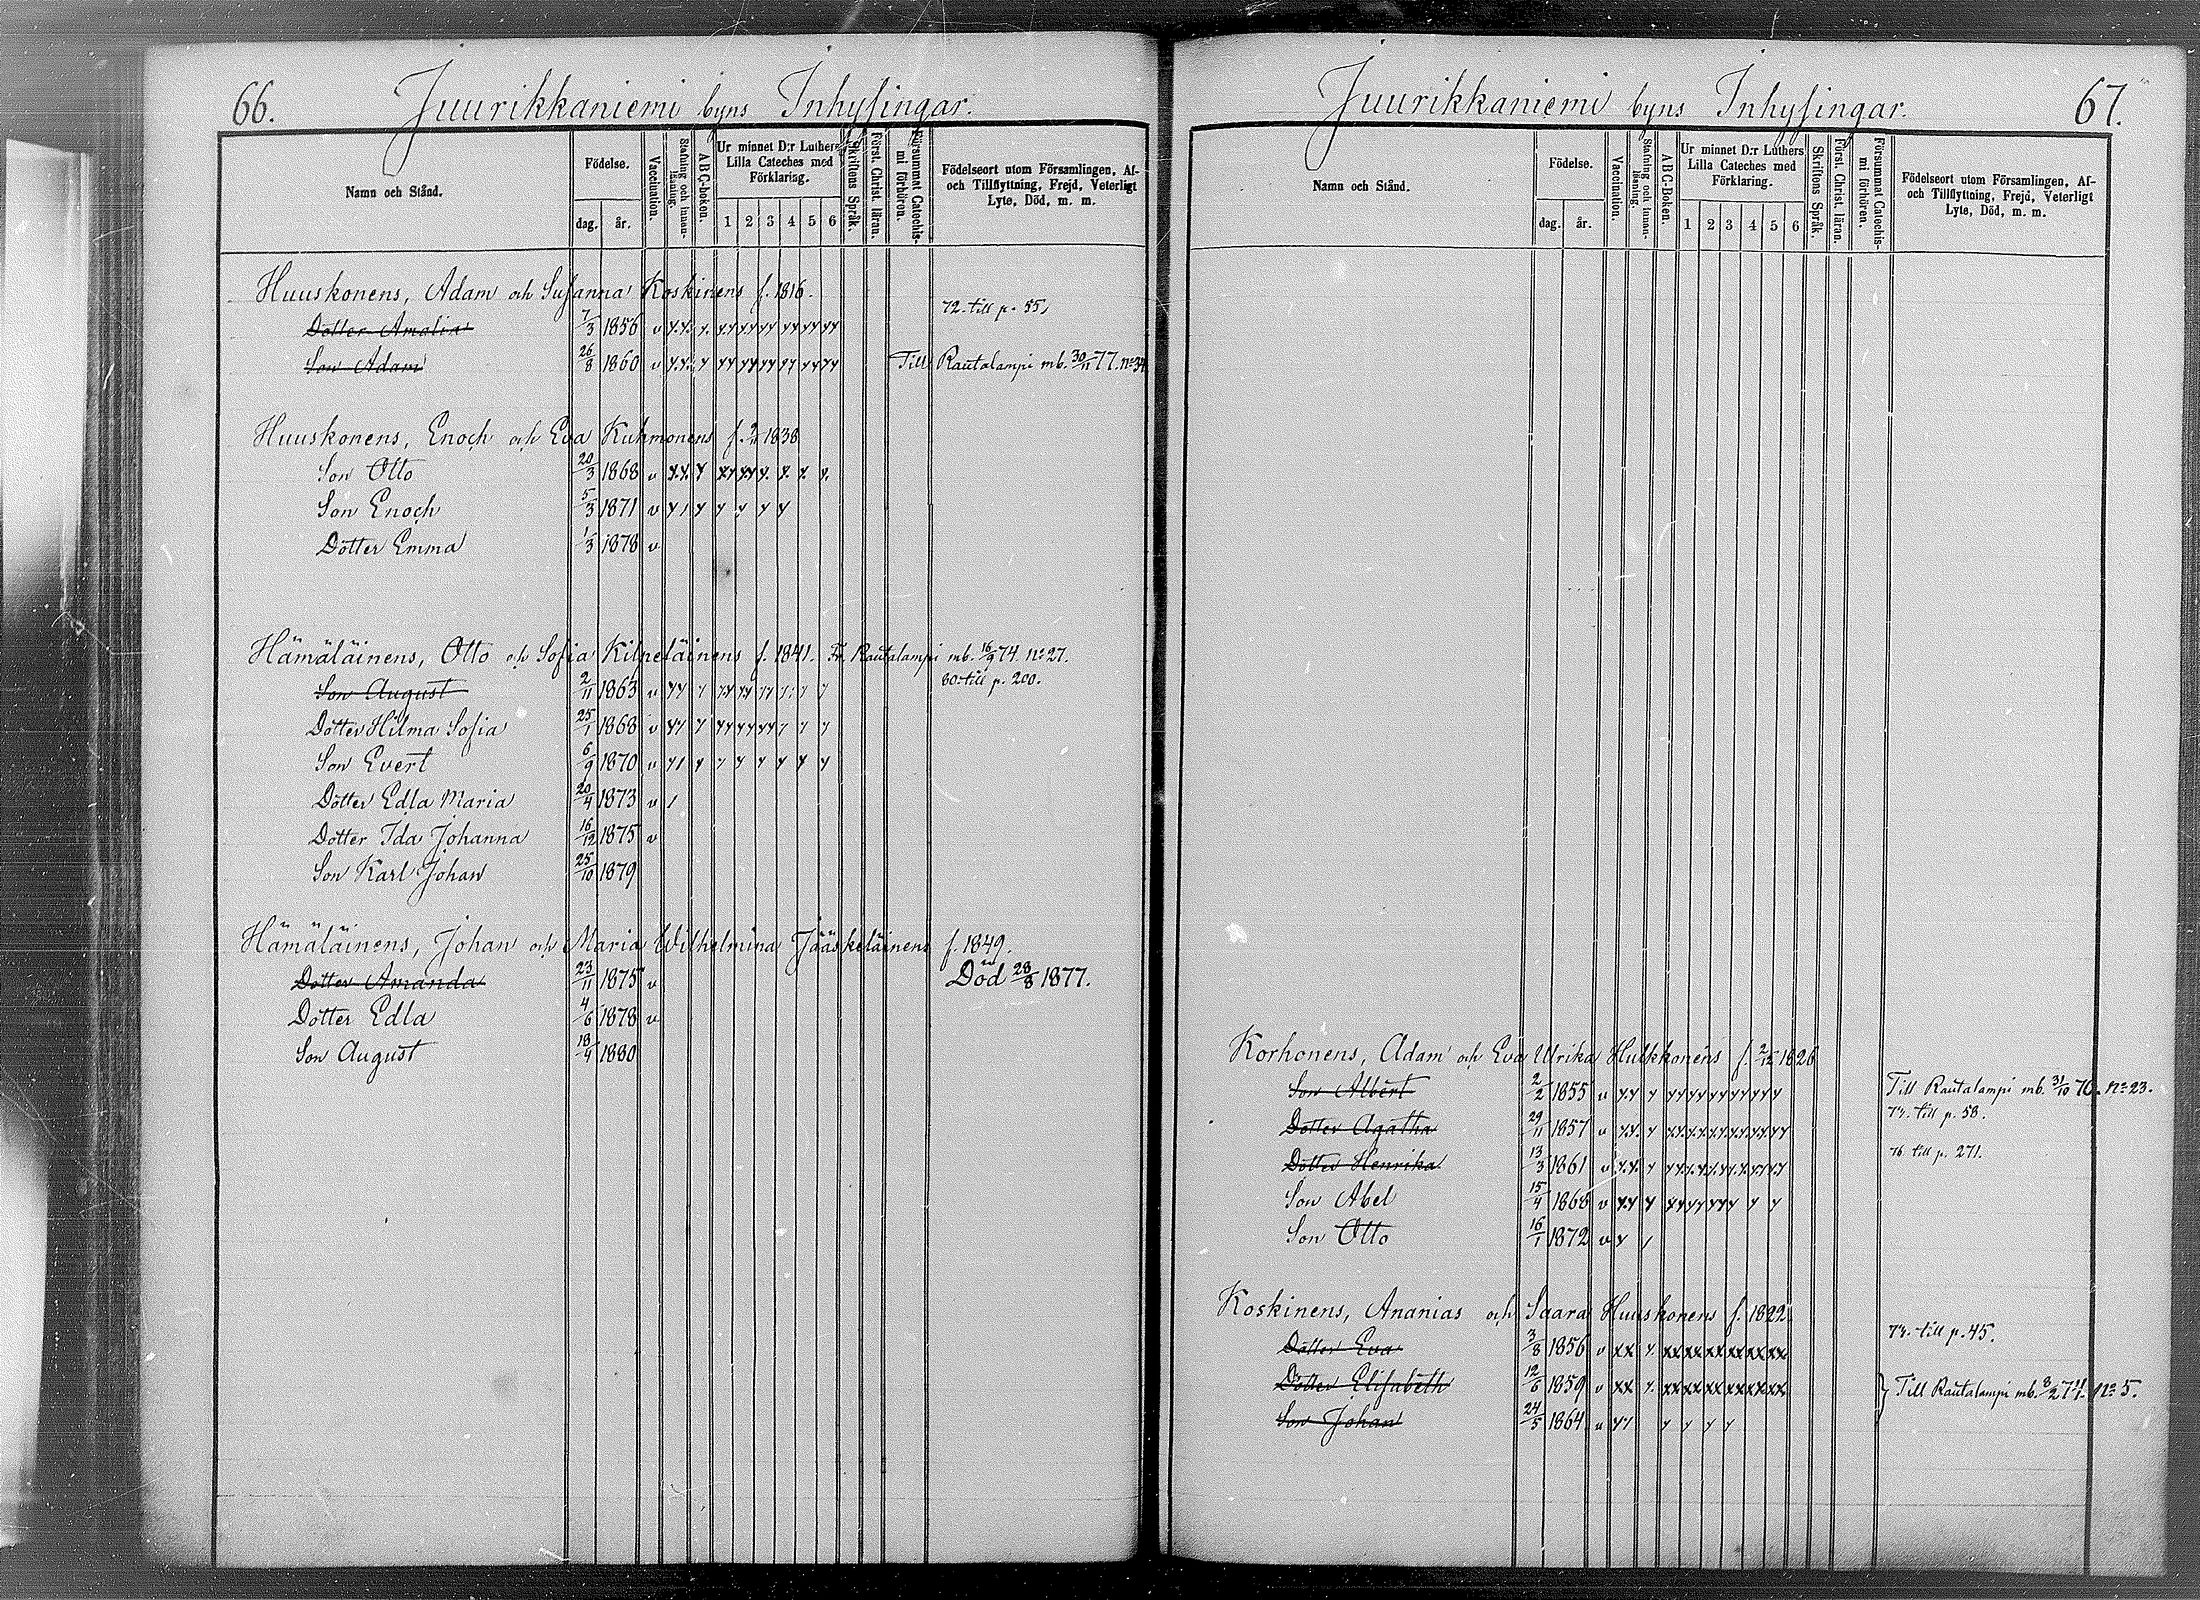 66. Juurikkaniemi byns Inhysingar.
Namn och Stånd.
Födelse.
dag. år.
Vaccination.
Stafning och innan-läsning.
ABC-boken.
Ur minnet D:r Luthers
Lilla Cateches med
Förklaring.
1 2 3 4 5 6
Skriftens Språk.
Först. Christ. läran.
Försummat Catechis-
mi förhören.
Födelseort utom Församlingen, Af-
och Tillflyttning, Frejd, Veterligt
Lyte, Död, m. m.
Huuskonens, Adam och Susanna Koskinens f. 1816.
Dotter Amalia 7/3 1856 v 72. till p. 55,
Son Adam 26/8 1860 v Till Rautalampi mb. 30/11 77. no 34
Huuskonens, Enoch och Eva Kuhmonens f. 1838
Son Otto 20/3 1868 v
Son Enoch 5/3 1871 v
Dotter Emma 1/3 1878 v
Hämäläinens, Otto och Sofia Kilpeläinens f. 1841. Fr. Rautalampi mb. 16/9 74 no 27.
Son August 2/11 1863 v 80. till p. 200.
Dotter Hilma Sofia 25/1 1868 v
Son Evert 6/9 1870 v
Dotter Edla Maria 20/4 1873 v
Dotter Ida Johanna 16/12 1875 v
Son Karl Johan 25/10 1879
Hämäläinens, Johan och Maria Wilhelmina Jääskeläinens f. 1849.
Dotter Amanda 23/11 1875 v Död 28/8 1877.
Dotter Edla 4/6 1878 v
Son August 18/4 1880
Juurikkaniemi byns Inhysingar. 67.
Namn och Stånd.
Födelse.
dag. år.
Vaccination.
Stafning och innan-läsning.
ABC-Boken.
Ur minnet D:r Luthers
Lilla Cateches med
Förklaring.
1 2 3 4 5 6
Skriftens Språk.
Först. Christ. läran.
Försummat Catechis-
mi förhören.
Födelseort utom Församlingen, Af-
och Tillflyttning, Frejd, Veterligt
Lyte, Död, m. m.
Korhonens, Adam och Eva Ulrika Hulkkonens f. 2/12 1826
Son Albert 2/2 1855 v Till Rautalampi mb. 31/10 76. no 23.
Dotter Agatha 29/11 1857 v 73. till p. 58.
Dotter Henrika 13/3 1861 v 76 till p. 271.
Son Abel 15/4 1868 v
Son Otto 16/1 1872 v
Koskinens, Ananias och Saara Huuskonens f. 1822.
Dotter Eva 3/8 1856 v 73. till p. 45.
Dotter Elisabeth 12/6 1859 v } Till Rautalampi mb. no 5.
Son Johan 24/5 1864 v